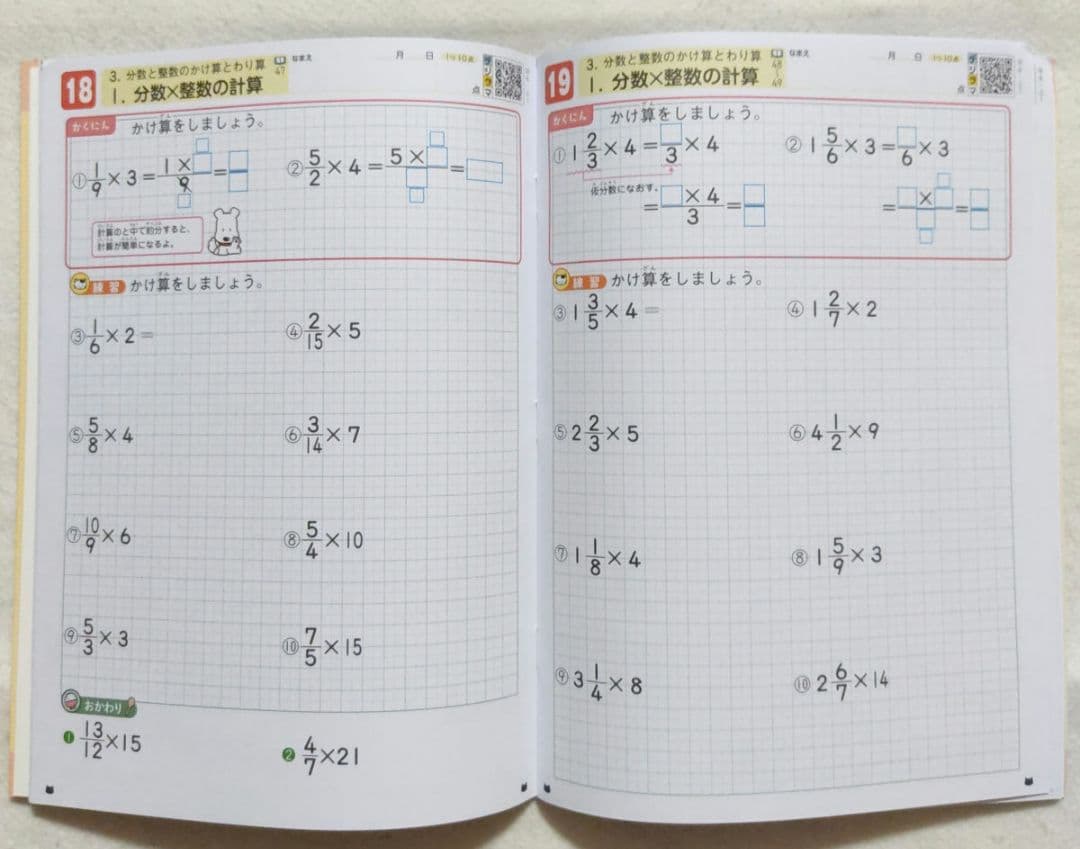 18
3. 分数と整数のかけ算とわり算
47
1. 分数×整数の計算
なまえ
月 日
1つ10点
点
デジタマ
かくにん かけ算をしましょう。
① 1/9 × 3 = 1×□/9 = □/□
② 5/2 × 4 = 5×□/□ = □
計算のと中で約分すると、
計算が簡単になるよ。
練習 かけ算をしましょう。
③ 1/6 × 2 =
④ 2/15 × 5
⑤ 5/8 × 4
⑥ 3/14 × 7
⑦ 10/9 × 6
⑧ 5/4 × 10
⑨ 5/3 × 3
⑩ 7/5 × 15
おかわり
❶ 13/12 ×15
❷ 4/7 ×21
19
3. 分数と整数のかけ算とわり算
48
49
1. 分数×整数の計算
なまえ
月 日
1つ10点
点
デジタマ
かくにん かけ算をしましょう。
① 1 2/3 × 4 = □/3 × 4
仮分数になおす。
= □×4/3 = □/□
② 1 5/6 × 3 = □/6 × 3
= □×□/□ = □/□
練習 かけ算をしましょう。
③ 1 3/5 × 4 =
④ 1 2/7 × 2
⑤ 2 2/3 × 5
⑥ 4 1/2 × 9
⑦ 1 1/8 × 4
⑧ 1 5/9 × 3
⑨ 3 1/4 × 8
⑩ 2 6/7 × 14